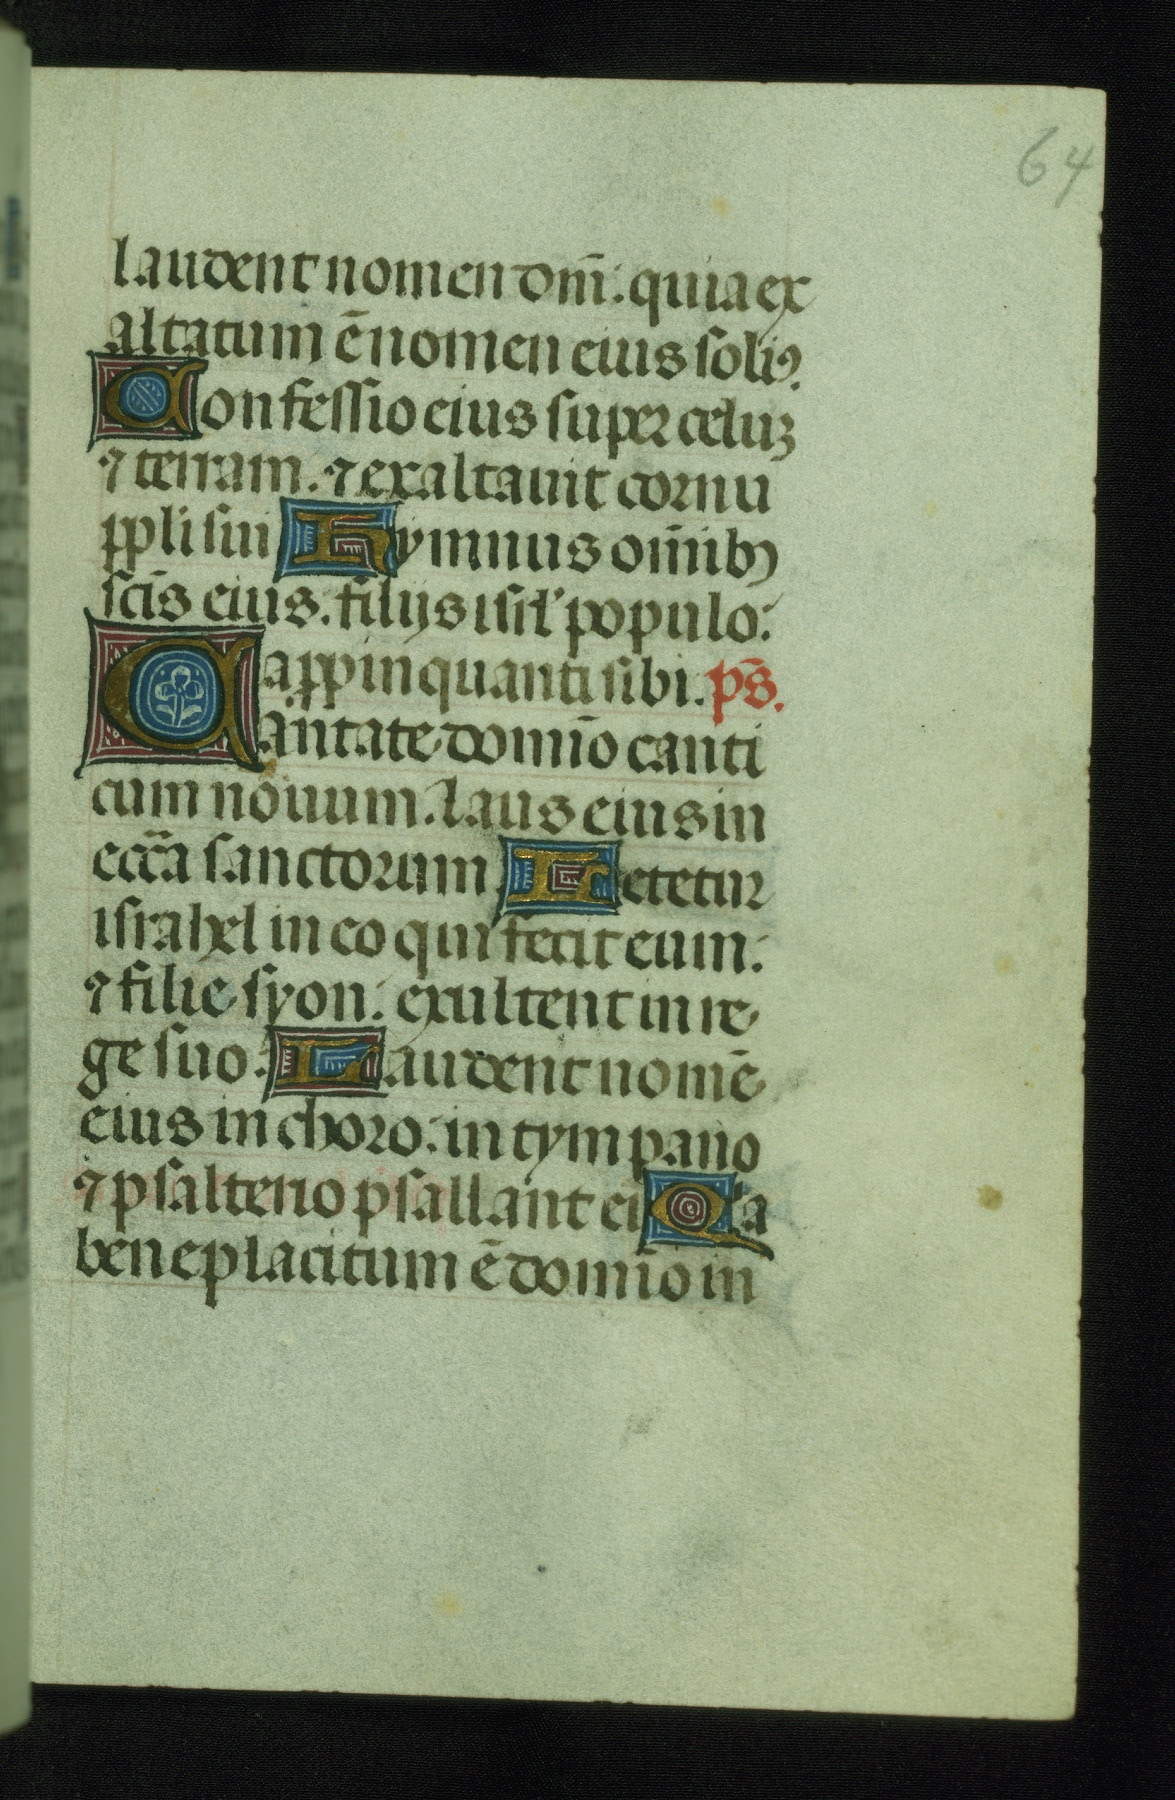 64
laudent nomen dm̄: quia ex
altatum ē nomen eius soliꝰ.
Confessio eius super celuꝫ
⁊ terram. ⁊ exaltauit cornu
ppli sui Hymnus om̄ibꝫ
scīs eius. filijs isrl̓ populo:
appinquanti sibi. ps̄.
Cantate domīo canti
cum nouum. laus eius in
eccīa sanctorum Letetur
israhel in eo qui fecit eum:
⁊ filie syon: exultent in re
ge suo: Laudent nomē
eius in choro: in tympano
⁊ psalterio psallant ei Qīa
beneplacitum ē domīo in